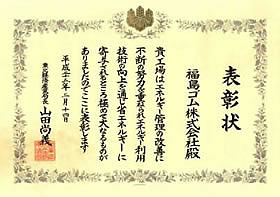 表彰状
福島ゴム株式会社殿
貴工場はエネルギー管理の改善に
不断の努力を重ねられエネルギー利用
技術の向上を通じ省エネルギーに
寄与されるところ極めて大なるものが
ありましたのでここに表彰します
平成十三年二月十四日
東北経済産業局長
山田尚義